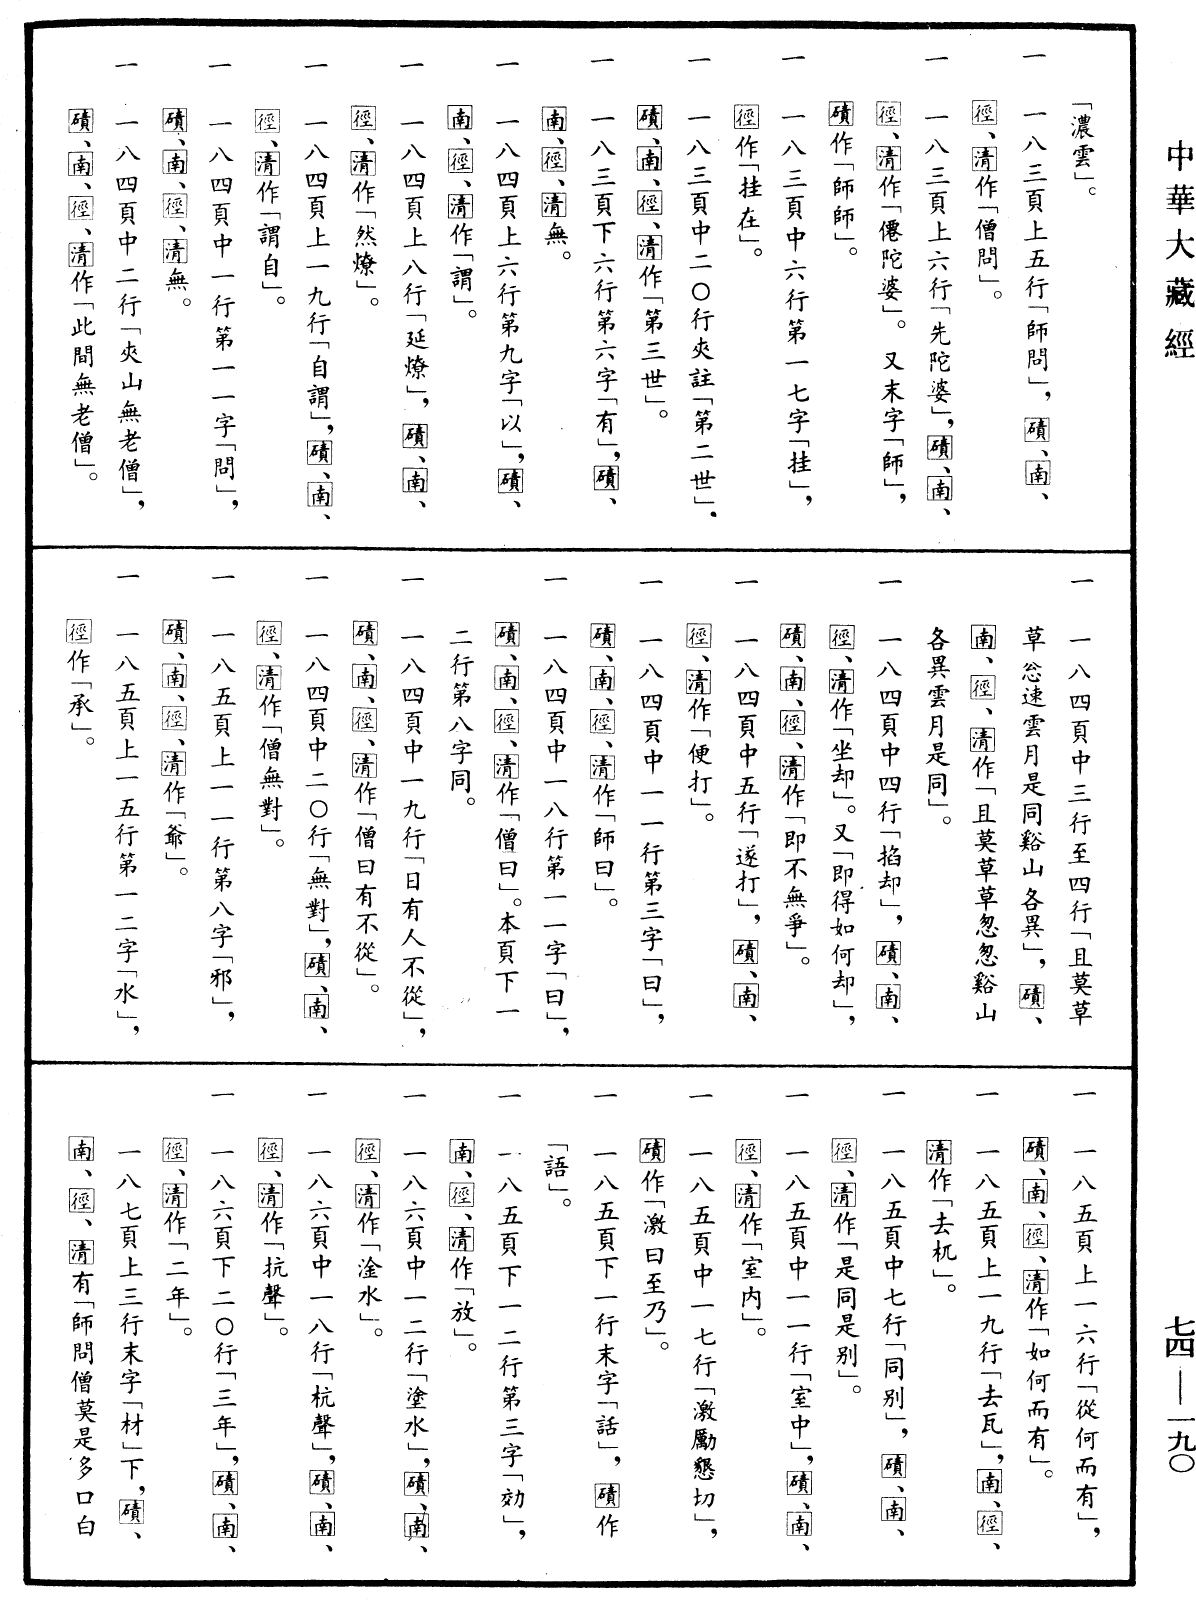 中華大藏經
七四——一九〇
「濃雲」。
一 一八三頁上五行「師問」，磧、南、
徑、清作「僧問」。
一 一八三頁上六行「先陀婆」，磧、南、
徑、清作「僊陀婆」。又末字「師」，
磧作「師師」。
一 一八三頁中六行第一七字「挂」，
徑作「挂在」。
一 一八三頁中二〇行夾註「第二世」，
磧、南、徑、清作「第三世」。
一 一八三頁下六行第六字「有」，磧、
南、徑、清無。
一 一八四頁上六行第九字「以」，磧、
南、徑、清作「謂」。
一 一八四頁上八行「延燎」，磧、南、
徑、清作「然燎」。
一 一八四頁上一九行「自謂」，磧、南、
徑、清作「謂自」。
一 一八四頁中一行第一一字「問」，
磧、南、徑、清無。
一 一八四頁中二行「夾山無老僧」，
磧、南、徑、清作「此間無老僧」。
一 一八四頁中三行至四行「且莫草
草忩速雲月是同谿山各異」，磧、
南、徑、清作「且莫草草忽忽谿山
各異雲月是同」。
一 一八四頁中四行「掐却」，磧、南、
徑、清作「坐却」。又「即得如何却」，
磧、南、徑、清作「即不無爭」。
一 一八四頁中五行「遂打」，磧、南、
徑、清作「便打」。
一 一八四頁中一一行第三字「曰」，
磧、南、徑、清作「師曰」。
一 一八四頁中一八行第一一字「曰」，
磧、南、徑、清作「僧曰」。本頁下一
二行第八字同。
一 一八四頁中一九行「日有人不從」，
磧、南、徑、清作「僧曰有不從」。
一 一八四頁中二〇行「無對」，磧、南、
徑、清作「僧無對」。
一 一八五頁上一一行第八字「邪」，
磧、南、徑、清作「爺」。
一 一八五頁上一五行第一二字「水」，
徑作「承」。
一 一八五頁上一六行「從何而有」，
磧、南、徑、清作「如何而有」。
一 一八五頁上一九行「去瓦」，南、徑、
清作「去杌」。
一 一八五頁中七行「同別」，磧、南、
徑、清作「是同是別」。
一 一八五頁中一一行「室中」，磧、南、
徑、清作「室內」。
一 一八五頁中一七行「激勵懇切」，
磧作「激曰至乃」。
一 一八五頁下一行末字「話」，磧作
「語」。
一 一八五頁下一二行第三字「効」，
南、徑、清作「放」。
一 一八六頁中一二行「塗水」，磧、南、
徑、清作「淦水」。
一 一八六頁中一八行「杭聲」，磧、南、
徑、清作「抗聲」。
一 一八六頁下二〇行「三年」，磧、南、
徑、清作「二年」。
一 一八七頁上三行末字「材」下，磧、
南、徑、清有「師問僧莫是多口白